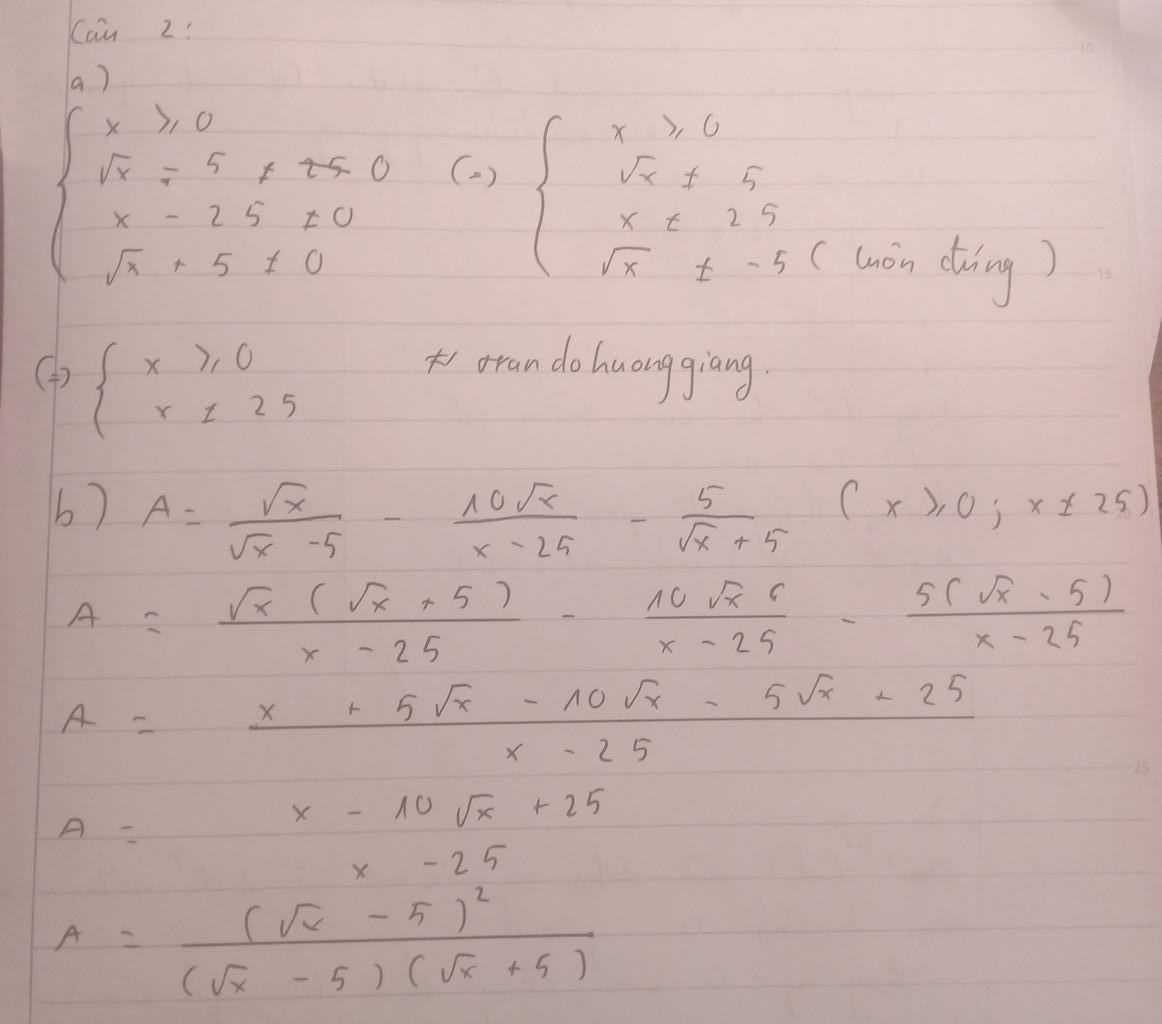 Câu 2:
a)
{ x ≥ 0
√x - 5 ≠ 0 (=) { x ≥ 0
x - 25 ≠ 0 √x ≠ 5
√x + 5 ≠ 0 x ≠ 25
√x ≠ -5 ( luôn đúng )
(=) { x ≥ 0 trandohuonggiang.
x ≠ 25
b) A = √x/(√x - 5) - 10√x/(x - 25) - 5/(√x + 5) ( x ≥ 0 ; x ≠ 25 )
A = √x ( √x + 5 )/(x - 25) - 10√x/(x - 25) - 5( √x - 5 )/(x - 25)
A = (x + 5√x - 10√x - 5√x + 25)/(x - 25)
A = x - 10√x + 25
x - 25
A = (√x - 5)²/((√x - 5)(√x + 5))